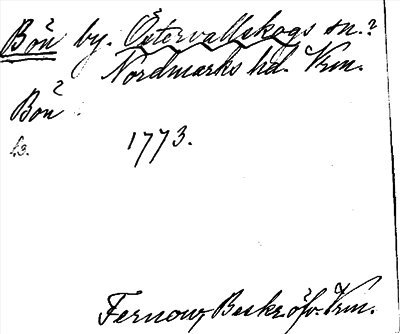 Bön by. Östervallskogs sn.?
Nordmarks hd. Vrm.
Bön
1773.
Fernow, Beskr. öfv. Vrm.